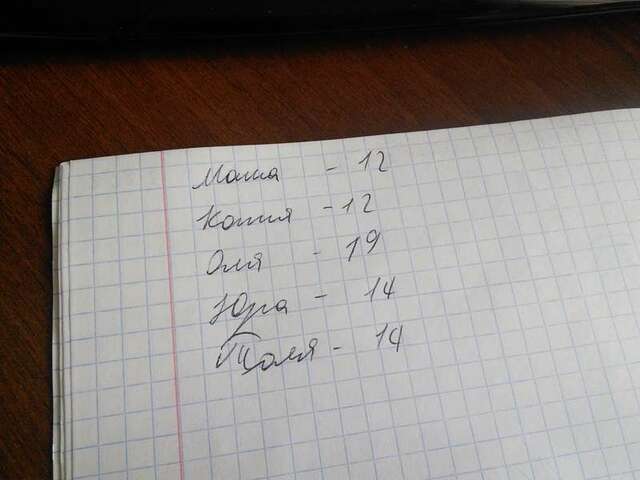 Маша - 12
Катя - 12
Оля - 19
Юра - 14
Толя - 14